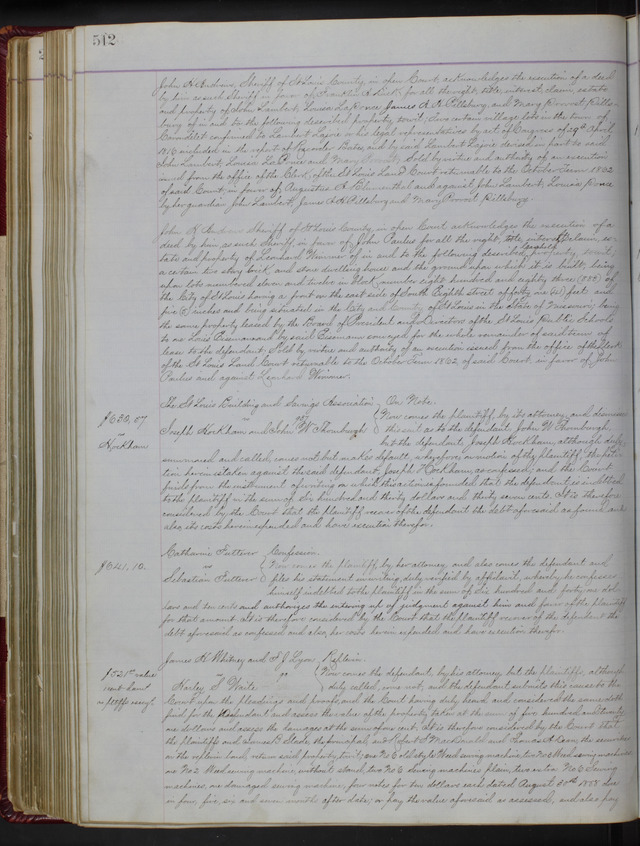 512
John K Andrews, Sheriff of St Louis County, in open Court, acknowledges the execution of a deed
by him as such Sheriff in favor of Franklin A Dick for all the right, title, interest, claim, estate
and property of John Lambert, Louisa La Ponce, James A H Pillsbury, and Mary Provost Pills-
bury of in and to the following described property, towit: two certain village lots in the town of
Carondelet confirmed to Lambert Lajoie or his legal representatives by act of Congress of 29th April
1816 included in the report of Recorder Bates, and by said Lambert Lajoie devised in part to said
John Lambert, Louisa La Ponce and Mary Provost, Sold by virtue and authority of an execution
issued from the office of the Clerk of the St Louis Land Court returnable to the October Term 1862
of said Court, in favor of Augustus A Blumenthal and against John Lambert, Louisa Ponce
by her guardian John Lambert, James A H Pillsbury and Mary Provost Pillsbury.
John K Andrews Sheriff of St Louis County, in open Court acknowledges the execution of a
deed by him as such Sheriff in favor of John Paulus for all the right, title, interest, claim, es-
tate and property of Leonard Wimmer of in and to the following described leasehold property, towit;
a certain two story brick and stone dwelling house and the ground upon which it is built, being
upon lots numbered eleven and twelve in block number eight hundred and eighty three (883) of
the City of St Louis having a front on the east side of South Eighth street of forty one (41) feet and
five (5) inches and being situated in the City and County of St Louis in the State of Missouri; being
the same property leased by the Board of President and Directors of the St Louis Public Schools
to one Louis Eisenmann and by said Eisenmann conveyed for the whole remainder of said term of
lease to the defendant. Sold by virtue and authority of an execution issued from the office of the Clerk
of the St Louis Land Court returnable to the October Term 1862 of said Court, in favor of John
Paulus and against Leonhard Wimmer.
The St Louis Building and Savings Association On Note.
$630,07 vs Now comes the plaintiff, by its attorney, and dismisses
Joseph Horkham and John W Thornburgh this suit as to the defendant, John W Thornburgh
Horkham but the defendant, Joseph Horkham, although duly
summoned and called, comes not but makes default, wherefore, on motion of the plaintiff, the peti-
tion herein is taken against the said defendant, Joseph Horkham, as confessed; and the Court
finds from the instrument of writing on which this action is founded, that the defendant is indebted
to the plaintiff in the sum of six hundred and thirty dollars and thirty seven cents. It is therefore
considered by the Court that the plaintiff recover of the defendant the debt aforesaid as found, and
also its costs herein expended and have execution therefor.
Catharine Futterer Confession.
$641,10. vs Now comes the plaintiff, by her attorney and also comes the defendant and
Sebastian Futterer files his statement in writing, duly verified by affidavit, whereby he confesses
himself indebted to the plaintiff in the sum of six hundred and forty one dol-
lars and ten cents and authorizes the entering up of judgment against him and in favor of the plaintiff
for that amount. It is therefore considered by the Court that the plaintiff recover of the defendant the
debt aforesaid as confessed and also her costs herein expended and have execution therefor.
James H Whitney and A J Lyon Replevin.
$521.00 value vs Now comes the defendant, by his attorney, but the plaintiffs, although
Harley S Waite duly called, come not; and the defendant submits this cause to the
Court upon the pleadings and proofs, and the Court having duly heard and considered the same doth
find for the defendant and assess the value of the property taken at the sum of five hundred and twenty
one dollars and assess the damages at the sum of one cent. It is therefore considered by the Court that
the plaintiffs and James B Slade the principal, and Robert S MacDonald and the securities
in the replevin bond, return said property, towit; one No 2 old style Weed sewing machine, two No 2 Weed sewing machines,
one No 2 Weed sewing machine, without stand, two No 3 Sewing machines plain, two extra No 3 Sewing
machines, one damaged sewing machine, four notes for ten dollars each dated August 30th 1858 due
in four, five, six and seven months after date, or pay the value aforesaid as assessed, and also pay